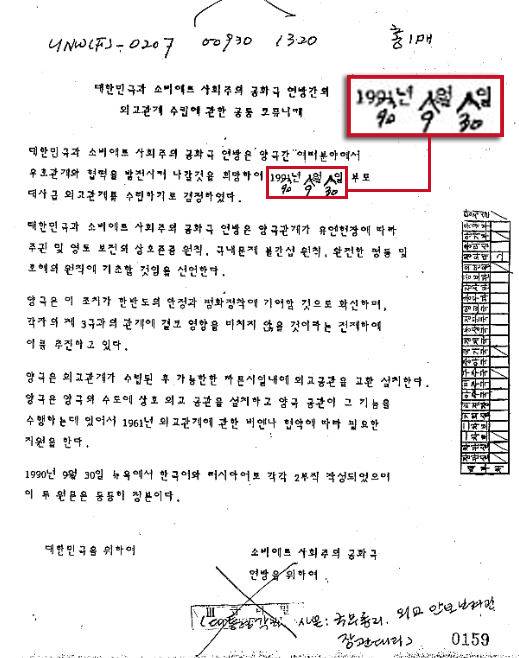 UNW(F)-0207 00930 1320 총1매
대한민국과 소비에트 사회주의 공화국 연방간의
외교관계 수립에 관한 공동 코뮤니케
1991년 월 일
90 9 30
대한민국과 소비에트 사회주의 공화국 연방은 양국간 여러분야에서
우호관계와 협력을 발전시켜 나갈것을 희망하여 1991년 월 일 부로
90 9 30
대사급 외교관계를 수립하기로 결정하였다.
대한민국과 소비에트 사회주의 공화국 연방은 양국관계가 유엔헌장에 따라
주권 및 영토 보전의 상호존중 원칙, 국내문제 불간섭 원칙, 완전한 평등 및
호혜의 원칙에 기초할 것임을 선언한다.
양국은 이 조치가 한반도의 안정과 평화정착에 기여할 것으로 확신하며,
각자의 제 3국과의 관계에 결코 영향을 미치지 않을 것이라는 전제하에
이를 추진하고 있다.
양국은 외교관계가 수립된 후 가능한한 빠른시일내에 외교공관을 교환 설치한다.
양국은 양국의 수도에 상호 외교 공관을 설치하고 양국 공관이 그 기능을
수행하는데 있어서 1961년 외교관계에 관한 비엔나 협약에 따라 필요한
지원을 한다.
1990년 9월 30일 뉴욕에서 한국어와 러시아어로 각각 2부씩 작성되었으며
이 두 원본은 동등히 정본이다.
대한민국을 위하여 소비에트 사회주의 공화국
연방을 위하여
사본: 국무총리, 외교안보보좌관
장관대리) 0159